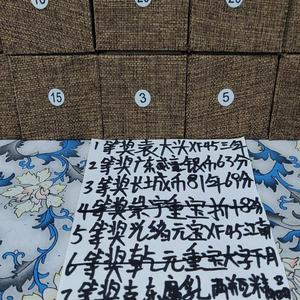 15 3 5
1等奖袁大头XF45三年
2等奖广东龙银币63分
3等奖长城币81年69分
4等奖崇宁重宝折十8分
5等奖光绪元宝XF45江南
6等奖乾元重宝大字下月
7等奖